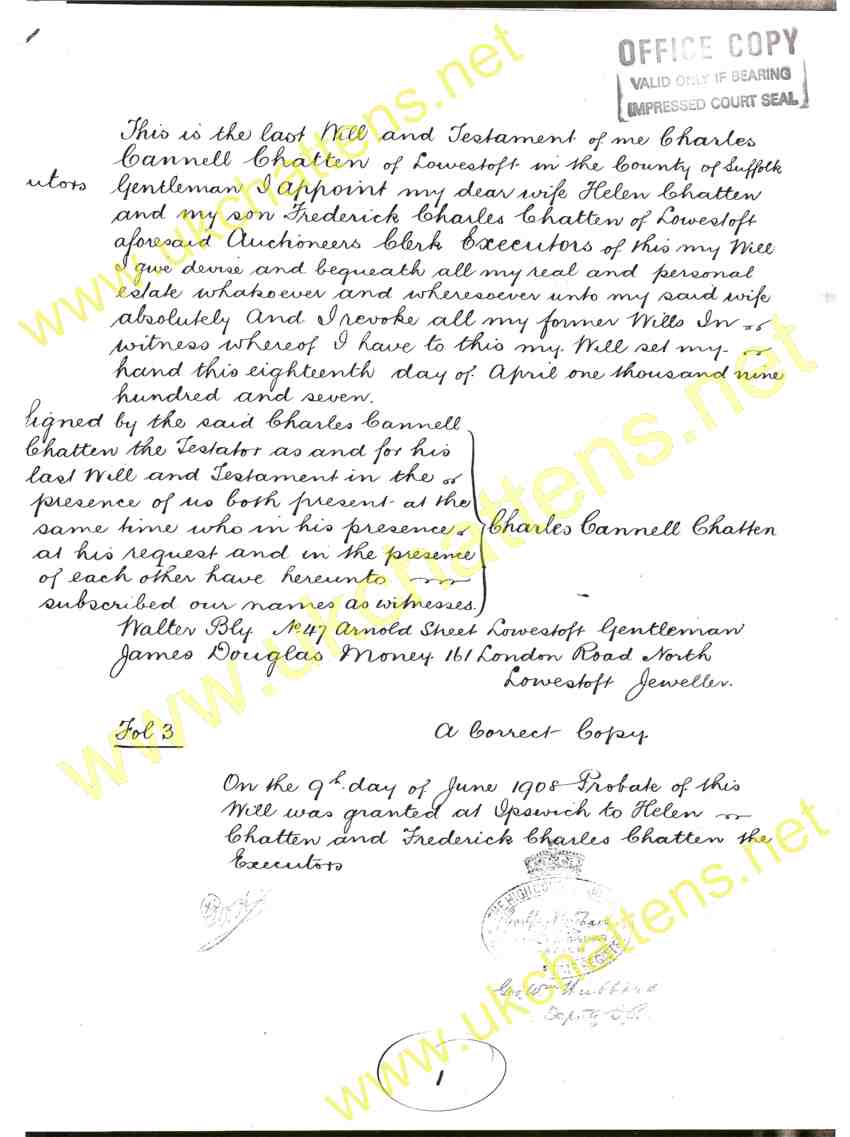 1
OFFICE COPY
VALID ONLY IF BEARING
IMPRESSED COURT SEAL
This is the last Will and Testament of me Charles
Cannell Chatten of Lowestoft in the County of Suffolk
utors
Gentleman I Appoint my dear wife Helen Chatten
and my son Frederick Charles Chatten of Lowestoft
aforesaid Auctioneers Clerk Executors of this my Will
I give devise and bequeath all my real and personal
estate whatsoever and wheresoever unto my said wife
absolutely And I revoke all my former Wills In
witness whereof I have to this my Will set my
hand this eighteenth day of April one thousand nine
hundred and seven.
Signed by the said Charles Cannell
Chatten the Testator as and for his
last Will and Testament in the
presence of us both present at the
same time who in his presence
at his request and in the presence
of each other have hereunto
subscribed our names as witnesses.
Charles Cannell Chatten
Walter Bly No. 47 Arnold Street Lowestoft Gentleman
James Douglas Money 161 London Road North
Lowestoft Jeweller.
Fol 3
A Correct Copy.
On the 9th. day of June 1908 Probate of this
Will was granted at Ipswich to Helen
Chatten and Frederick Charles Chatten the
Executors
THE HIGH CO
Geo. Wm Hubbard
Deputy
1
www.ukchattens.net
www.ukchattens.net
www.ukchattens.net